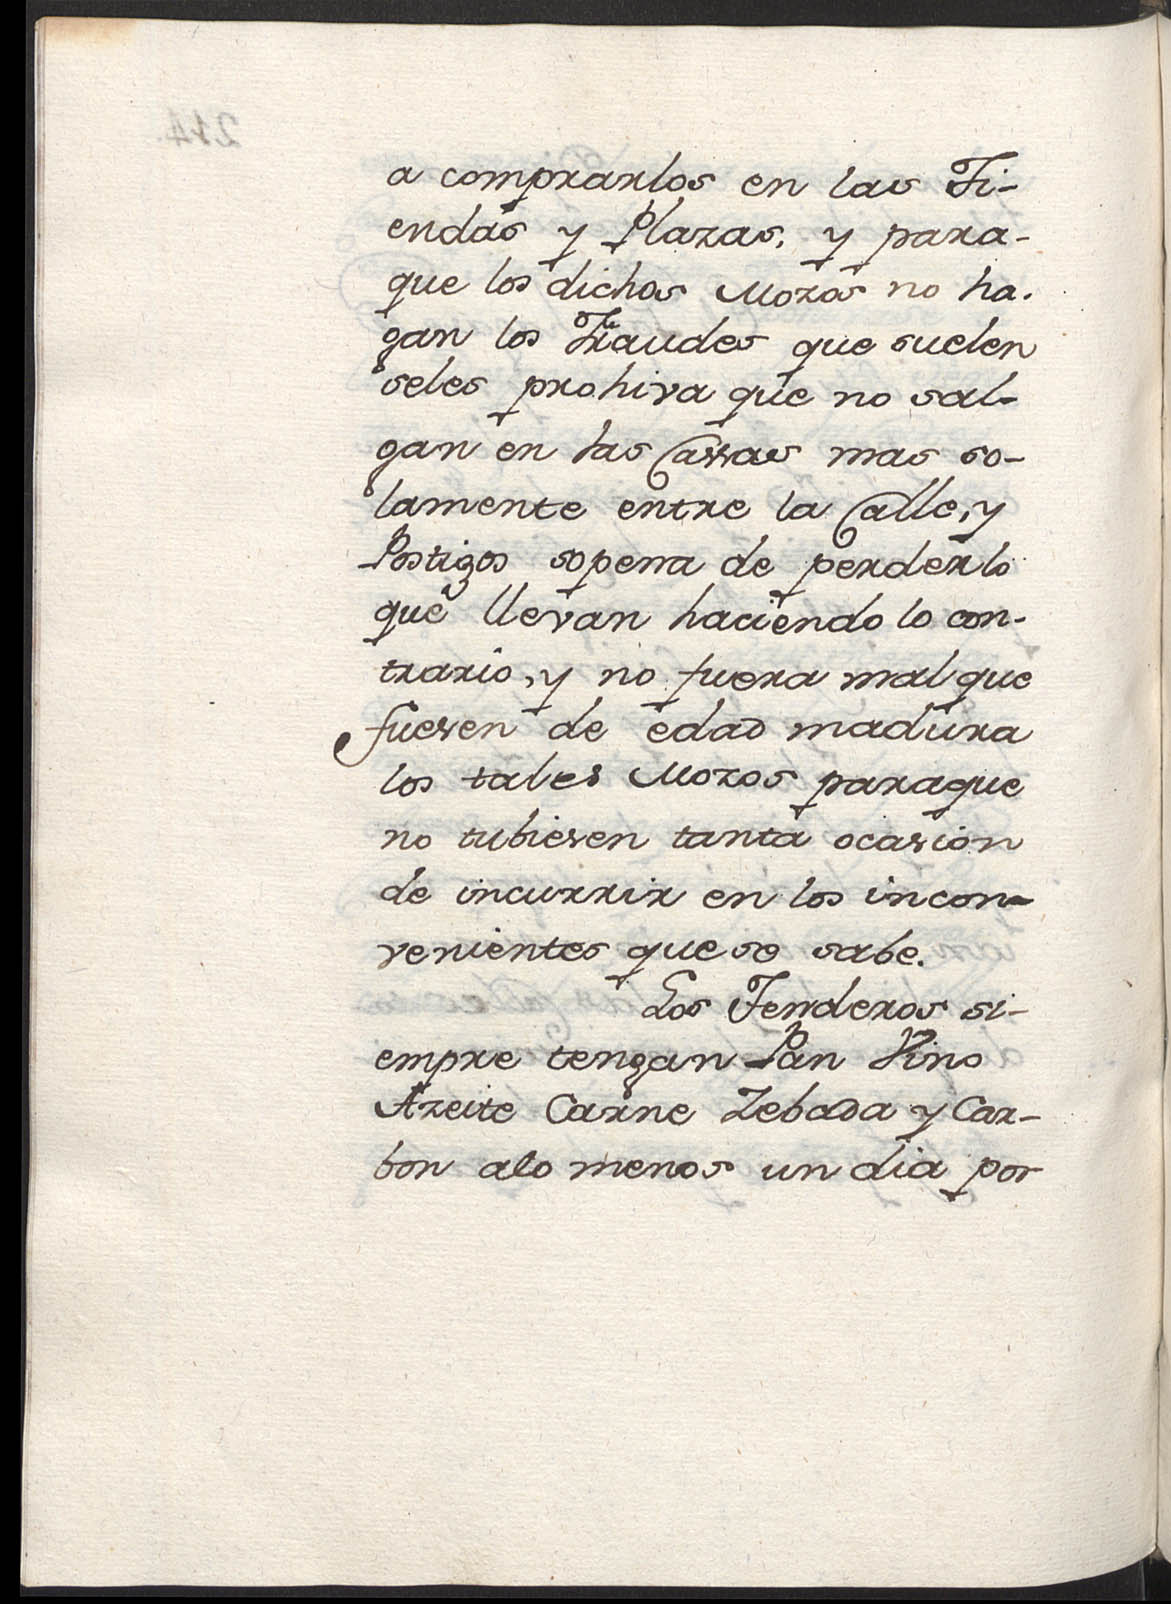 a comprarlos en las Ti-
endas y Plazas, y para-
que los dichos Mozos no ha-
gan los Fraudes que suelen
seles prohiva que no sal-
gan en las Cassas mas so-
lamente entre la Calle, y
Postigos sopena de perder lo
que llevan haciendo lo con-
trario, y no fuera mal que
fuesen de edad madura
los tales Mozos paraque
no tubiesen tanta ocasion
de incurrir en los incon-
venientes que se sabe.
Los Tenderos si-
empre tengan Pan Vino
Azeite Carne Zebada y Car-
bon alo menos un dia por